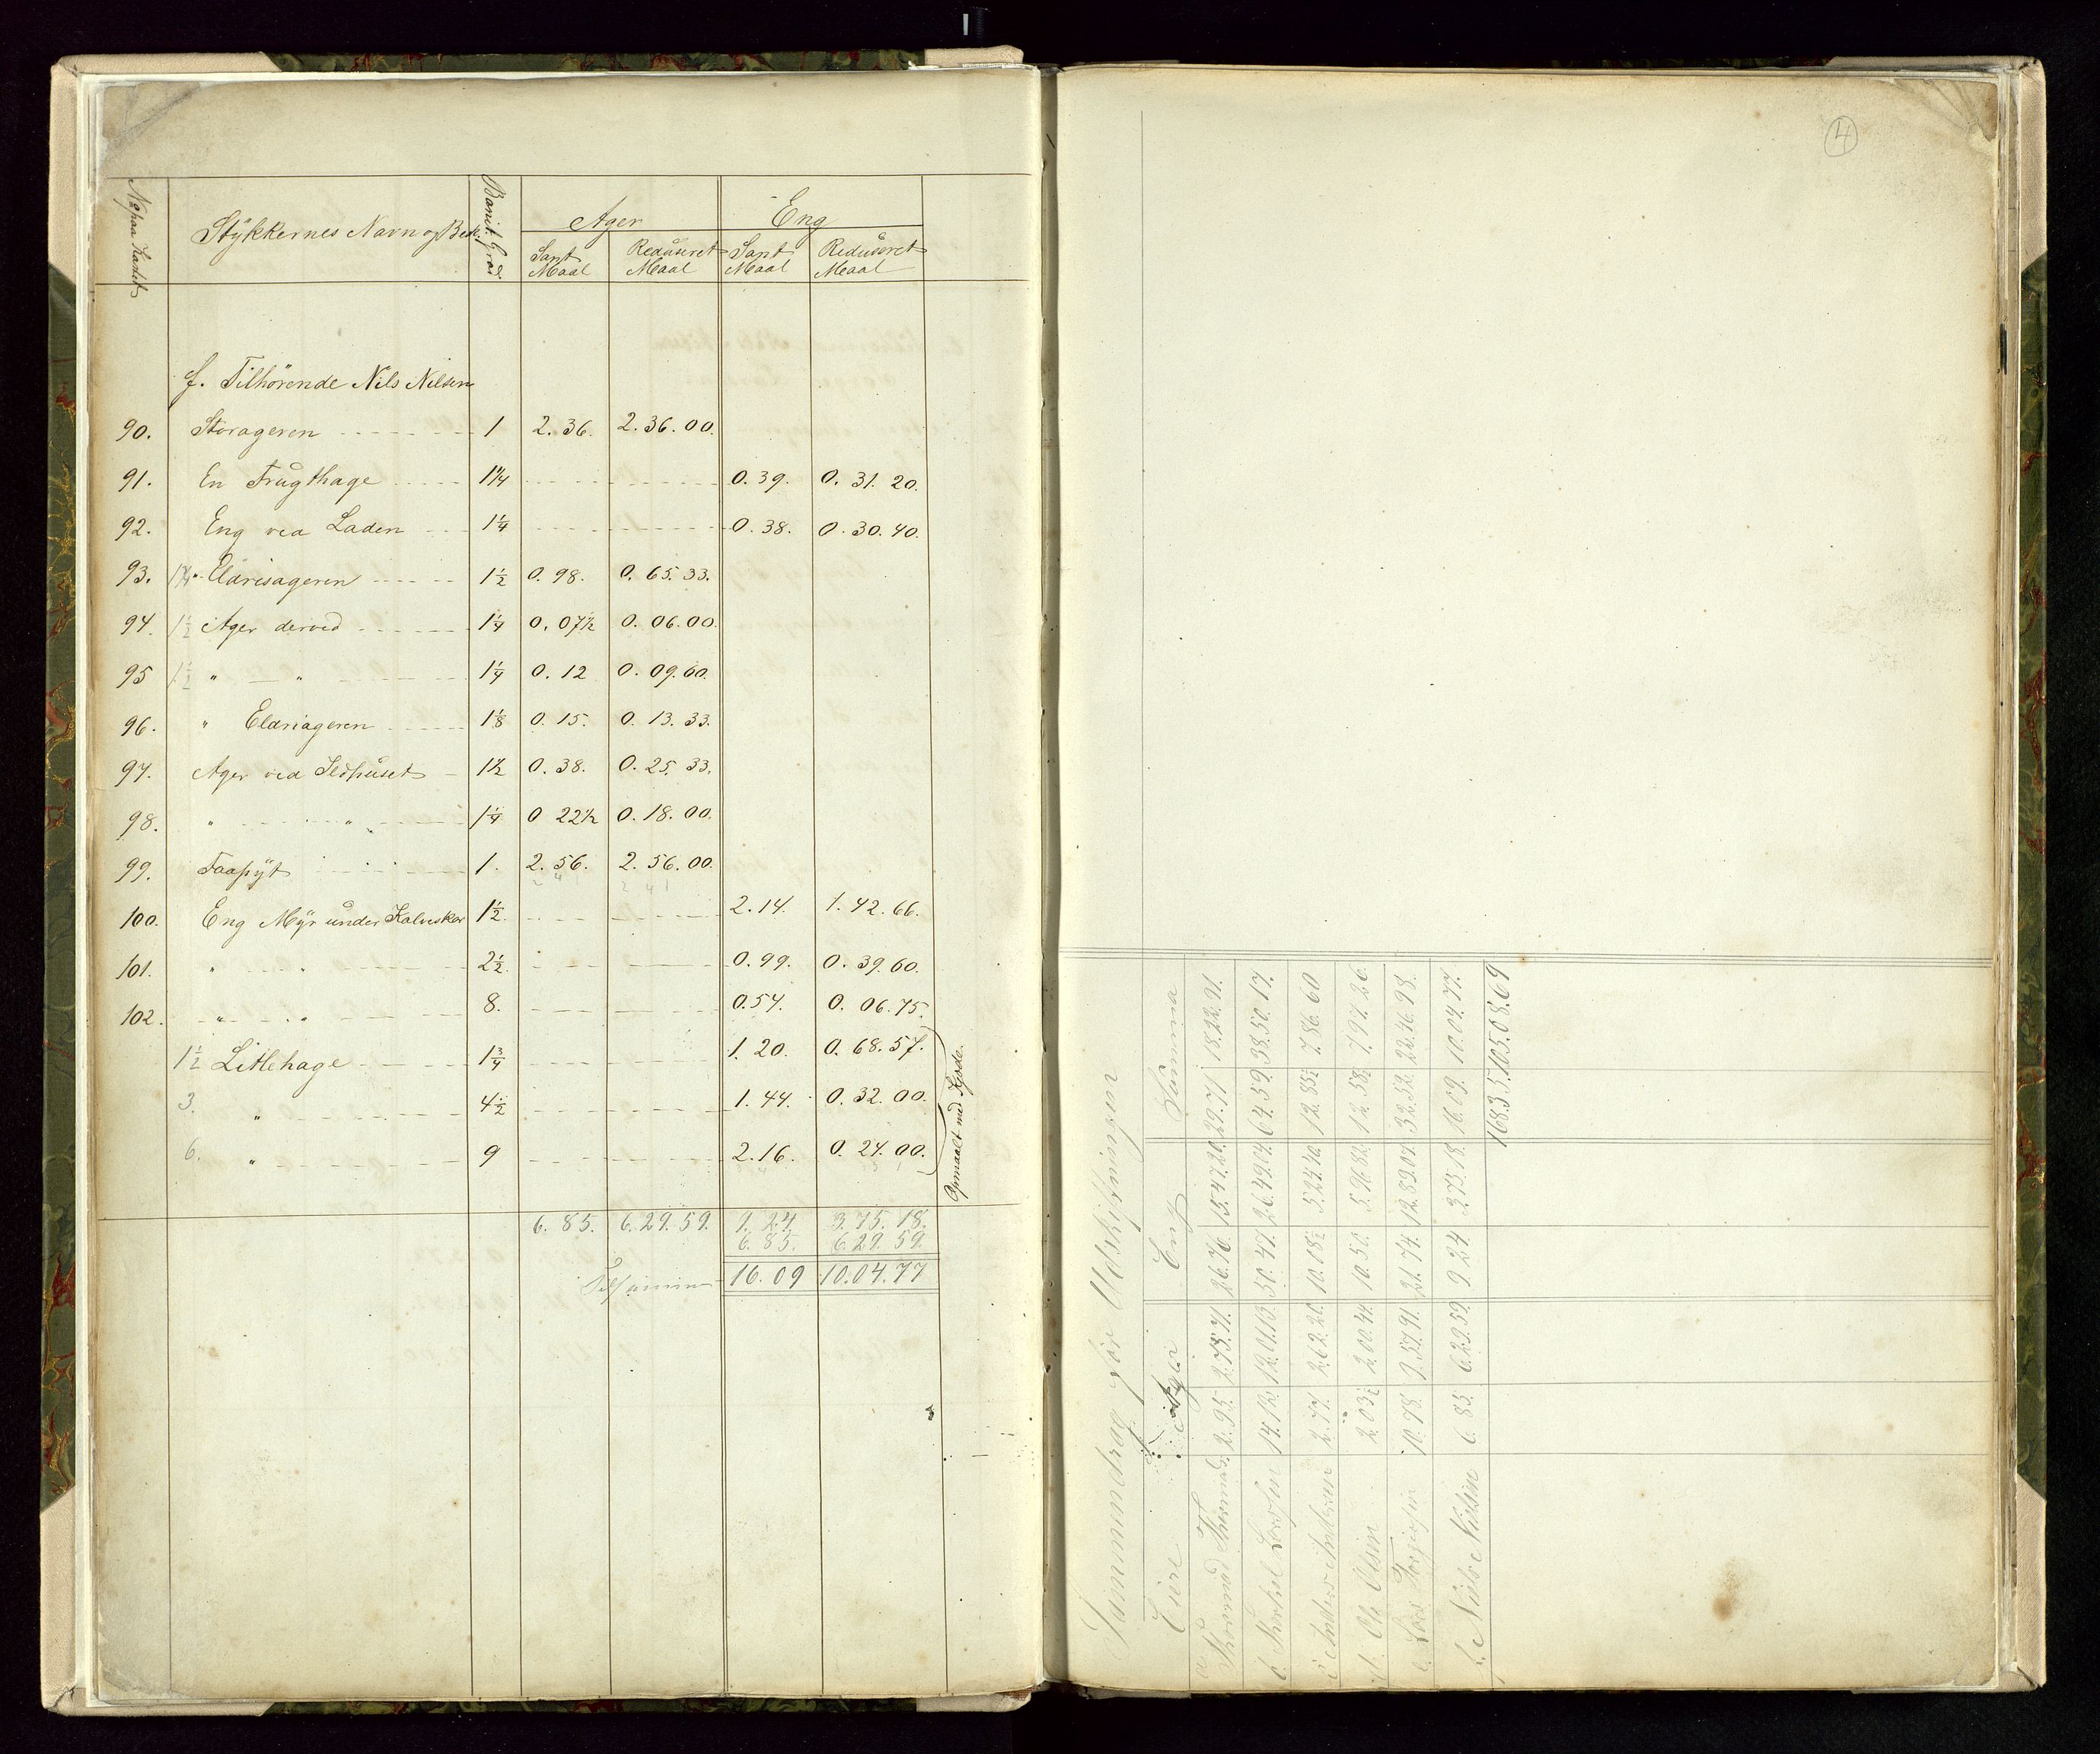 No paa Kartet
Stykkernes Navn og Besk.
Bonit. Grad
Ager
Eng
Sant Maal
Reduseret Maal
Sant Maal
Reduseret Maal
f. Tilhörende Nils Nilsen
90. Storageren 1 2. 36. 2. 36. 00.
91. En Frugthage 1 1/4 0. 39. 0. 31. 20.
92. Eng ved Laden 1 1/4 0. 38. 0. 30. 40.
93. 1 3/4 " Eldrisageren 1 1/2 0. 98. 0. 65. 33.
94. 1 1/2 Ager derved 1 1/4 0. 07 1/2 0. 06. 00.
95 1 1/2 " " 1 1/4 0. 12 0. 09. 60.
96. " Eldriageren 1 1/8 0. 15. 0. 13. 33.
97. Ager ved Ildhuset 1 1/2 0. 38. 0. 25. 33.
98. " " 1 1/4 0 22 1/2 0. 18. 00.
99. Taapyt 1. 2. 56. 2. 56. 00.
100. Eng Myr under Kalvesker 1 1/2. 2. 14. 1. 42. 66.
101. " " 2 1/2. 0. 99. 0. 39. 60.
102. " " 8. 0. 54. 0. 06. 75.
1 1/2 Litlehage 1 3/4 1. 20. 0. 68. 57.
3. " 4 1/2 1. 44. 0. 32. 00.
6. " 9 2. 16. 0. 24. 00.
Opmaalt med Kjæde.
6. 85. 6. 29. 59. 9. 24. 3. 75. 18.
6. 85. 6. 29. 59.
Tilsammen 16. 09 10. 04. 77
4
Sammendrag før Udskiftningen
Eiere Ager Eng Summa
a Thormod Thormods. 2. 95. 2. 75. 71. 26. 76. 15. 47. 20. 29. 71 18. 22. 91.
b Thorkel Larssen 14. 12. 12. 01. 13. 50. 47. 26. 49. 04. 64. 59. 38. 50. 17.
c Anders Andersen 2. 77. 2. 62. 20. 10. 08 1/2 5. 24. 40. 12. 85 1/2 7. 86. 60
d. Ole Olsen 2. 03 1/2 2. 00. 44. 10. 50. 5. 96. 82. 12. 58 1/2 7. 97. 26.
e. Lars Torgersen 10. 78. 9. 57. 91. 21. 74. 12. 89. 07. 32. 52. 22. 46. 98.
f. Niels Nilsen 6. 85. 6. 29. 59. 9. 24. 3. 75. 18. 16. 09. 10. 04. 77.
168. 35. 105. 08. 69